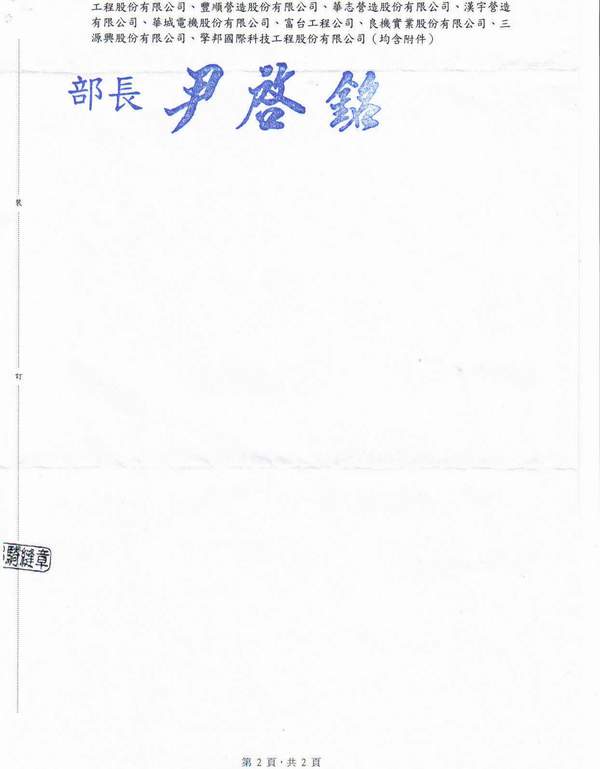 工程股份有限公司、豐順營造股份有限公司、華志營造股份有限公司、漢宇營造
有限公司、華城電機股份有限公司、富台工程公司、良機實業股份有限公司、三
源興股份有限公司、擎邦國際科技工程股份有限公司（均含附件）
部長 尹啓銘
裝
訂
騎縫章
第 2 頁，共 2 頁